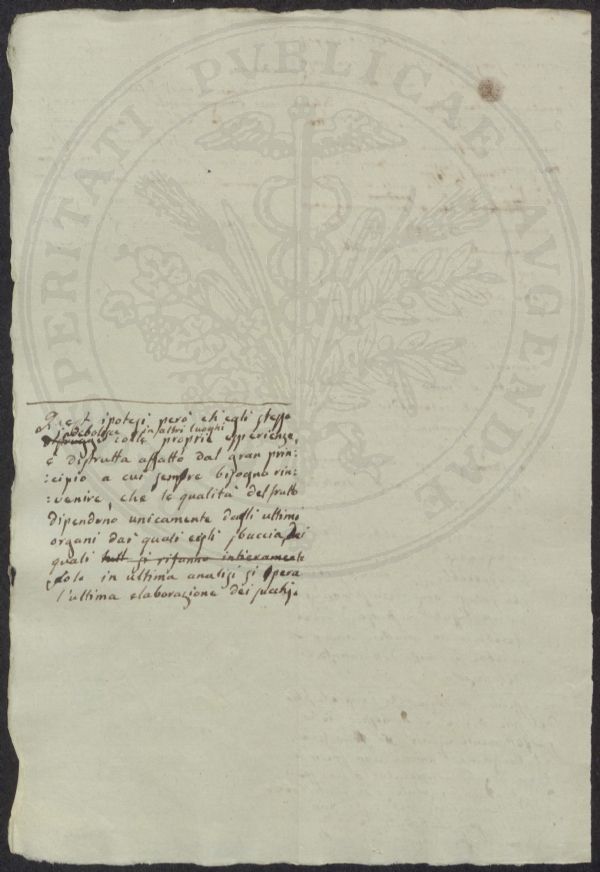 PROSPERITATI PVBLICAE AVGENDAE
Quest' ipotesi però ch'egli stesso
indebolisce in altri luoghi
distrugge colle proprie esperienze,
è distrutta affatto dal gran prin:
:cipio a cui sempre bisogna rin:
:venire, che le qualità del frutto
dipendono unicamente dagli ultimi
organi dai quali egli sbuccia, dei
quali tutt si rifanno intieramente
solo in ultima analisi si opera
l'ultima elaborazione dei